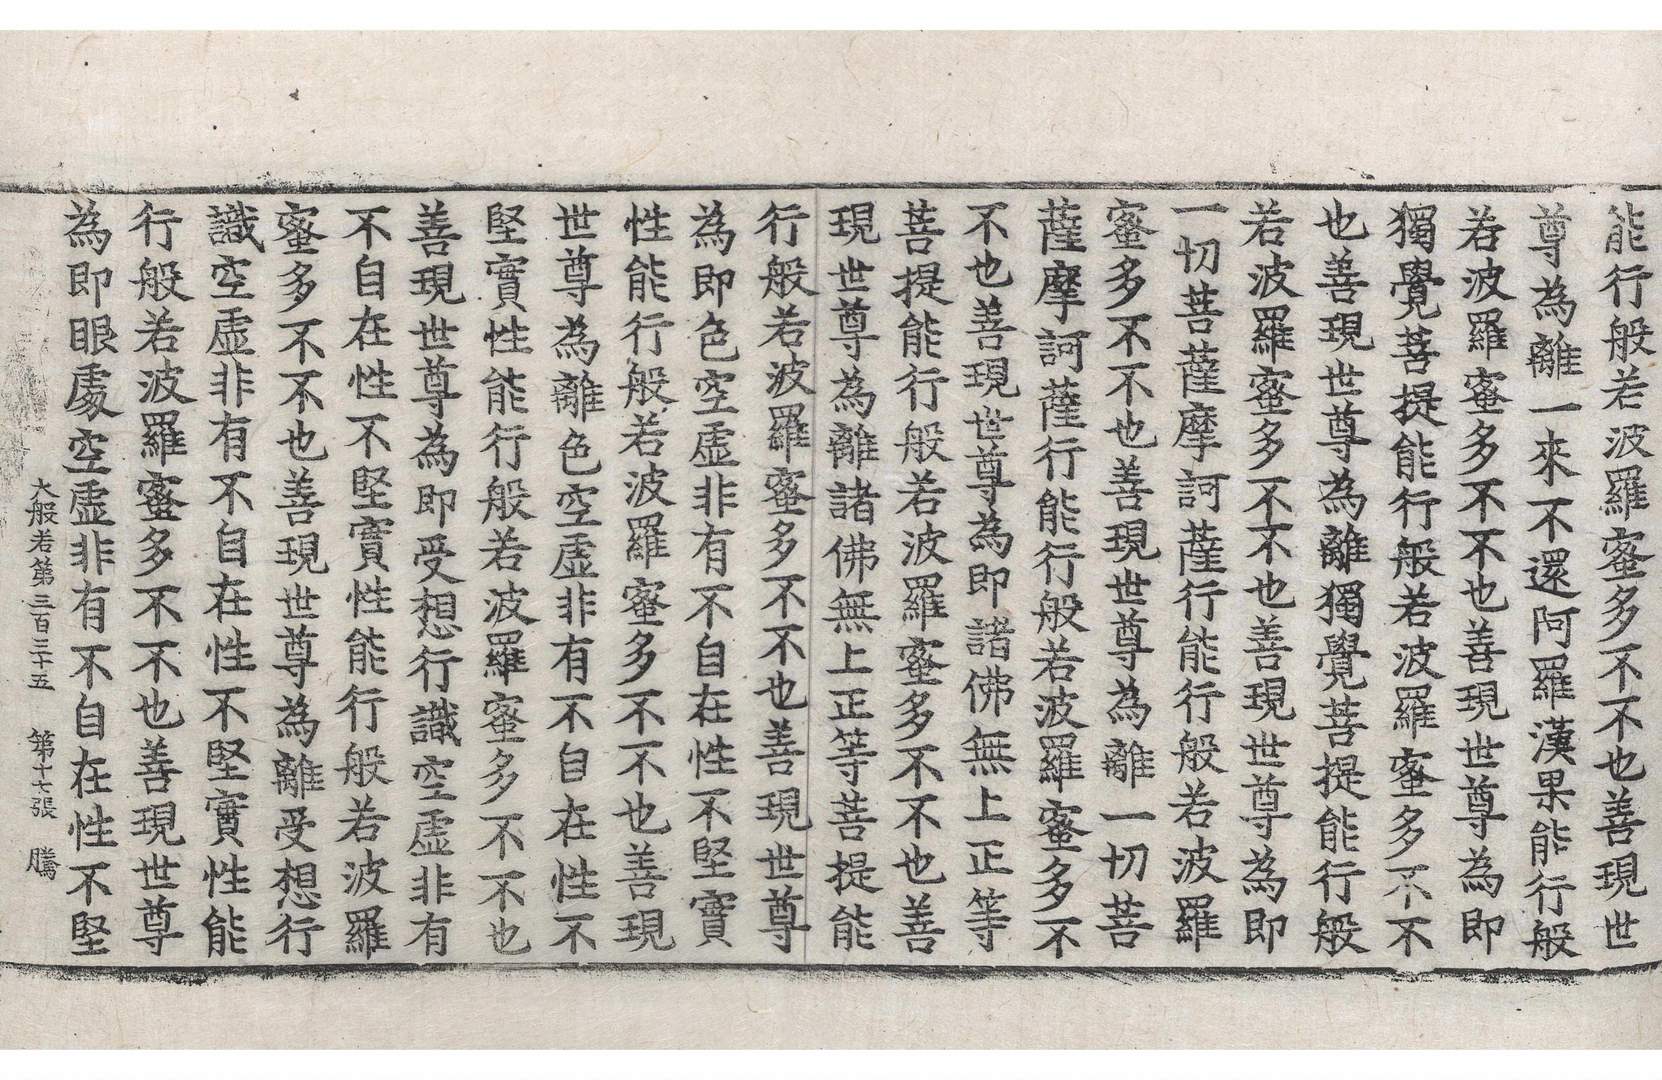 能行般若波羅蜜多不不也善現世
尊為離一來不還阿羅漢果能行般
若波羅蜜多不不也善現世尊為即
獨覺菩提能行般若波羅蜜多不不
也善現世尊為離獨覺菩提能行般
若波羅蜜多不不也善現世尊為即
一切菩薩摩訶薩行能行般若波羅
蜜多不不也善現世尊為離一切菩
薩摩訶薩行能行般若波羅蜜多不
不也善現世尊為即諸佛無上正等
菩提能行般若波羅蜜多不不也善
現世尊為離諸佛無上正等菩提能
行般若波羅蜜多不不也善現世尊
為即色空虛非有不自在性不堅實
性能行般若波羅蜜多不不也善現
世尊為離色空虛非有不自在性不
堅實性能行般若波羅蜜多不不也
善現世尊為即受想行識空虛非有
不自在性不堅實性能行般若波羅
蜜多不不也善現世尊為離受想行
識空虛非有不自在性不堅實性能
行般若波羅蜜多不不也善現世尊
為即眼處空虛非有不自在性不堅
大般若第三百三十五 第十七張 騰